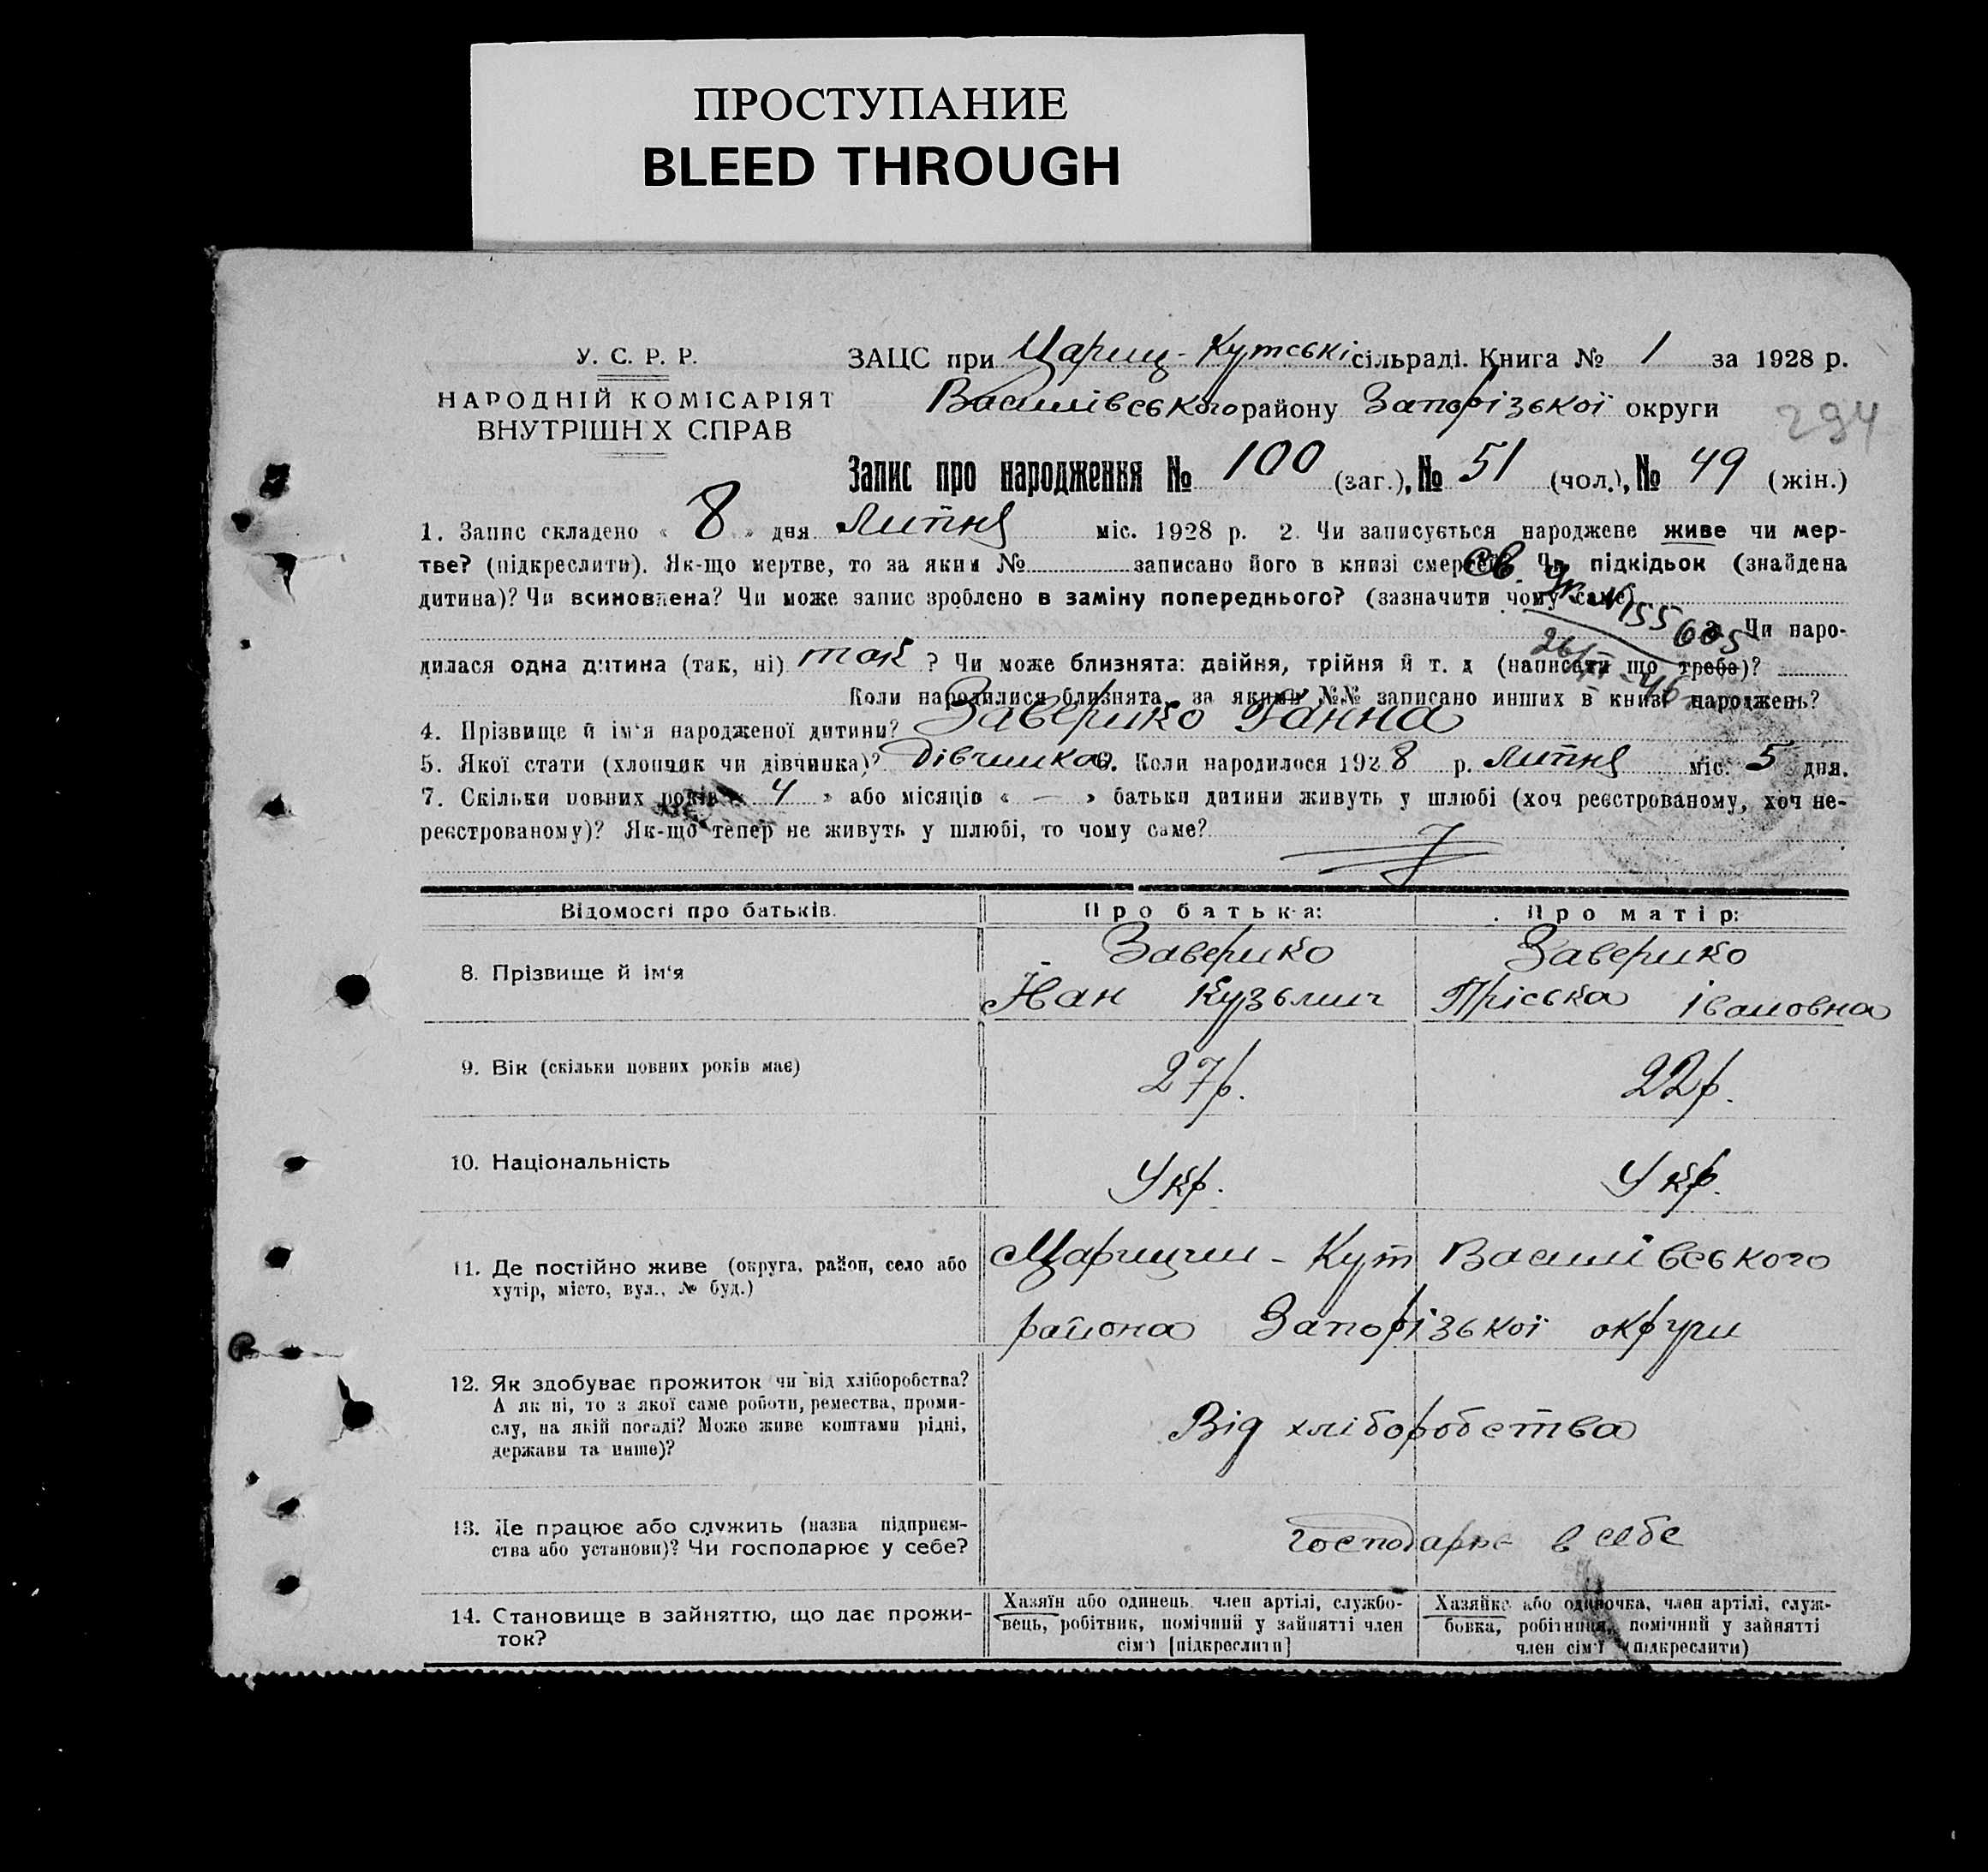 ПРОСТУПАНИЕ
BLEED THROUGH
У. С. Р. Р.
НАРОДНІЙ КОМІСАРІЯТ
ВНУТРІШН Х СПРАВ
ЗАЦС при Цариц-Кутські сільраді. Книга № 1 за 1928 р.
Василівського району Запорізької округи
294
Запис про народження № 100 (заг.), № 51 (чол.), № 49 (жін.)
1. Запис складено « 8 » дня Липня міс. 1928 р. 2. Чи записується народжене живе чи мер-
тве? (підкреслити). Як-що мертве, то за яким № записано його в книзі смертей? Чи підкідьок (знайдена
дитина)? Чи всиновлена? Чи може запис зроблено в заміну попереднього? (зазначити чому саме)
Св. Ук №155605
26/ 46
3. Чи наро-
дилася одна дитина (так, ні) так ? Чи може близнята: двійня, трійня й т. д (написати що треба)?
Коли народилися близнята, за якими №№ записано инших в книзі народжень?
4. Прізвище й ім'я народженої дитини? Заверико Ганна
5. Якої стати (хлопчик чи дівчинка)? Дівчинка 6. Коли народилося 1928 р. Липня міс. 5 дня.
7. Скільки повних років « 4 » або місяців « — » батьки дитини живуть у шлюбі (хоч реєстрованому, хоч не-
реєстрованому)? Як-що тепер не живуть у шлюбі, то чому саме?
Відомості про батьків.
Про батька:
Про матір:
8. Прізвище й ім'я
Заверико
Йван Кузьмич
Заверико
Пріська Івановна
9. Вік (скільки повних років має)
27р.
22р.
10. Національність
Укр.
Укр.
11. Де постійно живе (округа, район, село або
хутір, місто, вул., № буд.)
Царицин-Кут Василівського
района Запорізької округи
12. Як здобуває прожиток чи від хліборобства?
А як ні, то з якої саме роботи, ремества, проми-
слу, на якій посаді? Може живе коштами рідні,
держави та инше)?
Від хліборобства
13. Де працює або служить (назва підприєм-
ства або установи)? Чи господарює у себе?
господарює в себе
14. Становище в зайняттю, що дає прожи-
ток?
Хазяїн або одинець, член артілі, службо-
вець, робітник, помічний у зайнятті член
сім'ї [підкреслити]
Хазяйка або одиночка, член артілі, служ-
бовка, робітниця, помічний у зайнятті
член сім'ї (підкреслити)